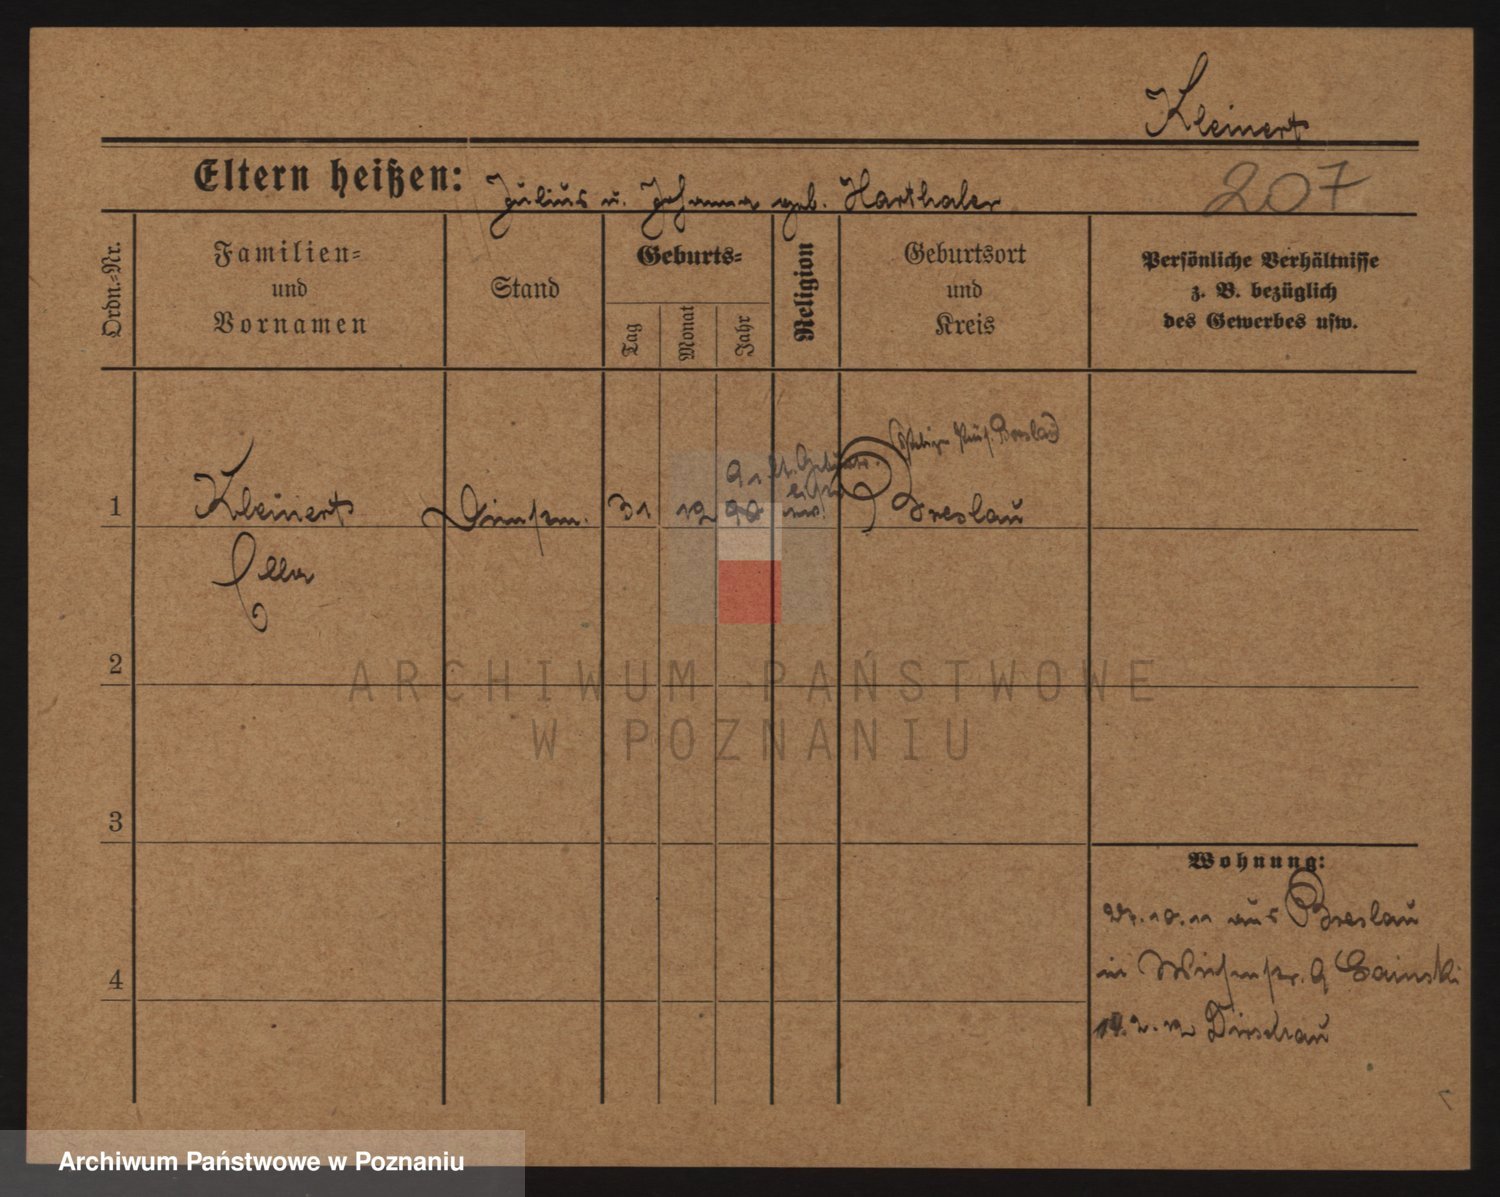 Kleinert
Eltern heißen: Julius u. Johanna geb. Harthaler
207
Ordn.-Nr.
Familien-
und
Vornamen
Stand
Geburts-
Tag
Monat
Jahr
Religion
Geburtsort
und
Kreis
Persönliche Verhältnisse
z. B. bezüglich
des Gewerbes usw.
91 lt. Geburts
Breslau
1
Kleinert
31 12 90 ev. Breslau
Ella
2
3
4
Wohnung:
10.11 aus Breslau
in 9
2.12 Dirschau
ARCHIWUM PAŃSTWOWE
W POZNANIU
Archiwum Państwowe w Poznaniu